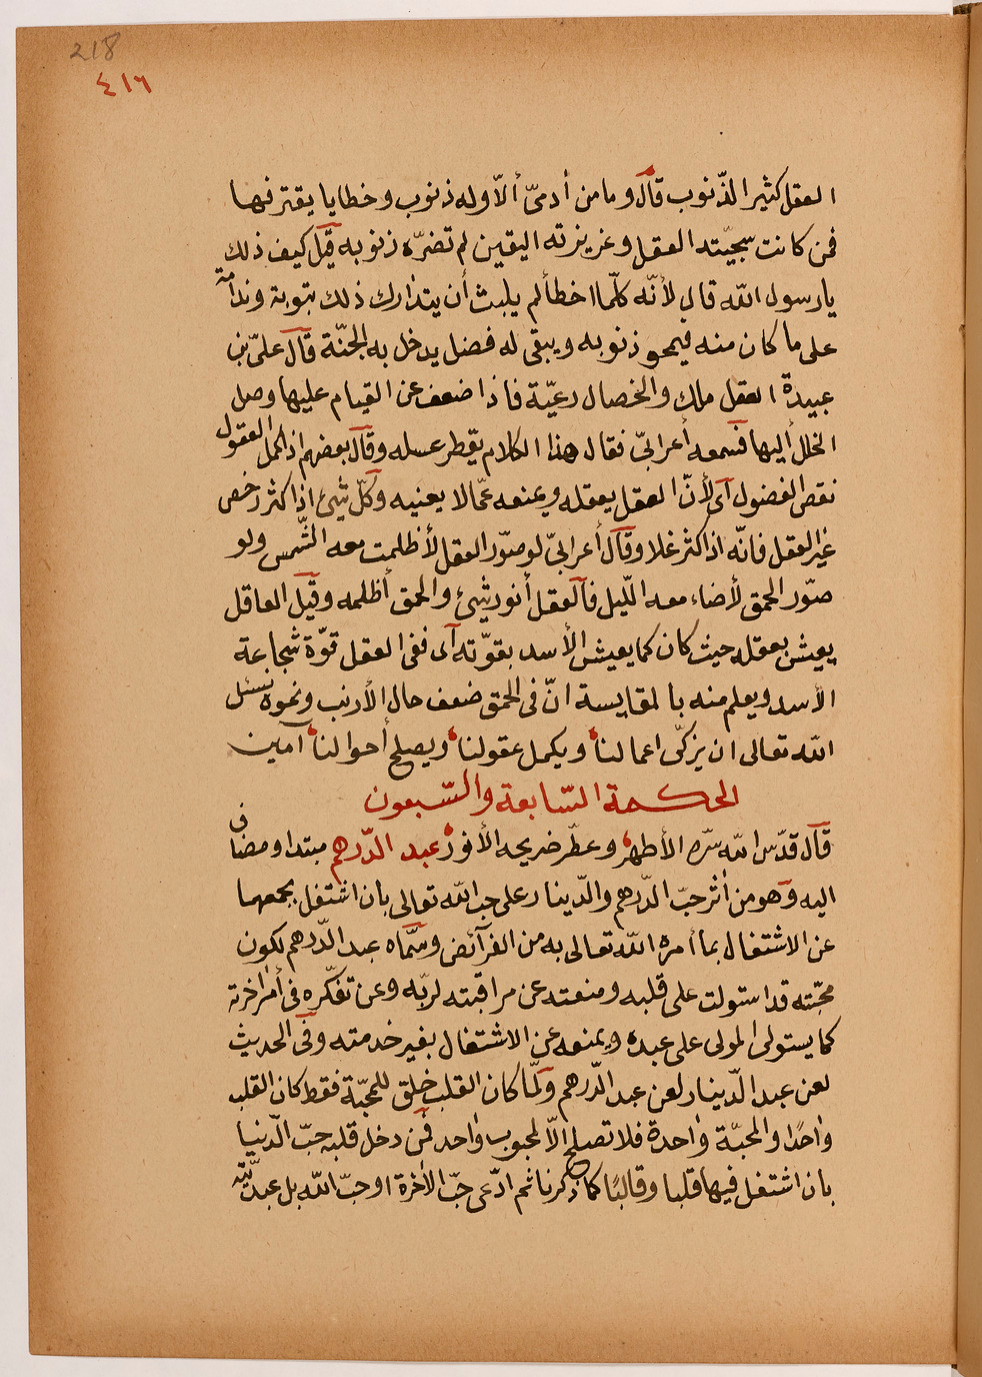 218
٤١٦
العقل كثير الذّنوب قال وما من أدمىّ ألاّ وله ذنوب وخطايا يقترفها
فمن كانت سجيّته العقل وغريزته اليقين لم تضرّه ذنوبه قيل كيف ذلك
يا رسول اللّه قال لأنّه كلّما اخطأ لم يلبث أن يتدارك ذلك بتوبة وندامة
على ما كان منه فيمحو ذنوبه ويبقى له فضل يدخل به الجنّة قال علىّ بن
عبيدة العقل ملك والخصال رعيّة فاذا ضعف عن القيام عليها وصل
الخلل أليها فسمعه أعرابىّ فقال هذا الكلام يقطر عسله وقال بعضهم اذا كمل العقول
نقص الفضول أى لأنّ العقل يعقله ويمنعه عمّا لا يعنيه وكلّ شيئ اذا كثر رخص
غير العقل فانّه اذا كثر غلا وقال أعرابىّ لو صوّر العقل لأظلمت معه الشّمس ولو
صوّر الحمق لأضاء معه اللّيل فالعقل أنور شيئ والحمق أظلمه وقيل العاقل
يعيش بعقله حيث كان كما يعيش الأسد بقوّته أى ففى العقل قوّة شجاعة
الأسد ويعلم منه بالمقايسة انّ فى الحمق ضعف حال الأرنب ونحوه نسئل
اللّه تعالى ان يزكّى اعمالنا ويكمل عقولنا ويصلح أحوالنا آمين
الحكمة السّابعة والسّبعون
قال قدّس اللّه سرّه الأطهر وعطّر ضريحه الأنور عبد الدّرهم مبتدا ومضاف
اليه وهو من أثر حبّ الدّرهم والدّينار على حب اللّه تعالى بان اشتغل بجمعها
عن الاشتغال بما أمره اللّه تعالى به من الفرآئض وسمّاه عبد الدّرهم لكون
محبّته قد استولت على قلبه ومنعته عن مراقبته لربّه وعن تفكّره فى أمر اخرته
كما يستولى المولى على عبده ويمنعه عن الاشتغال بغير خدمته وفى الحديث
لعن عبد الدّينار لعن عبد الدّرهم ولمّا كان القلب خلق للمحبّة فقط كان القلب
واحدًا والمحبّة واحدة فلا تصلح الاّ لمحبوب واحد فمن دخل قلبه حبّ الدّنيا
بان اشتغل فيها قلبا وقالبًا كما ذكرنا ثم ادّعى حبّ الأخرة او حبّ اللّه بل عبديّته